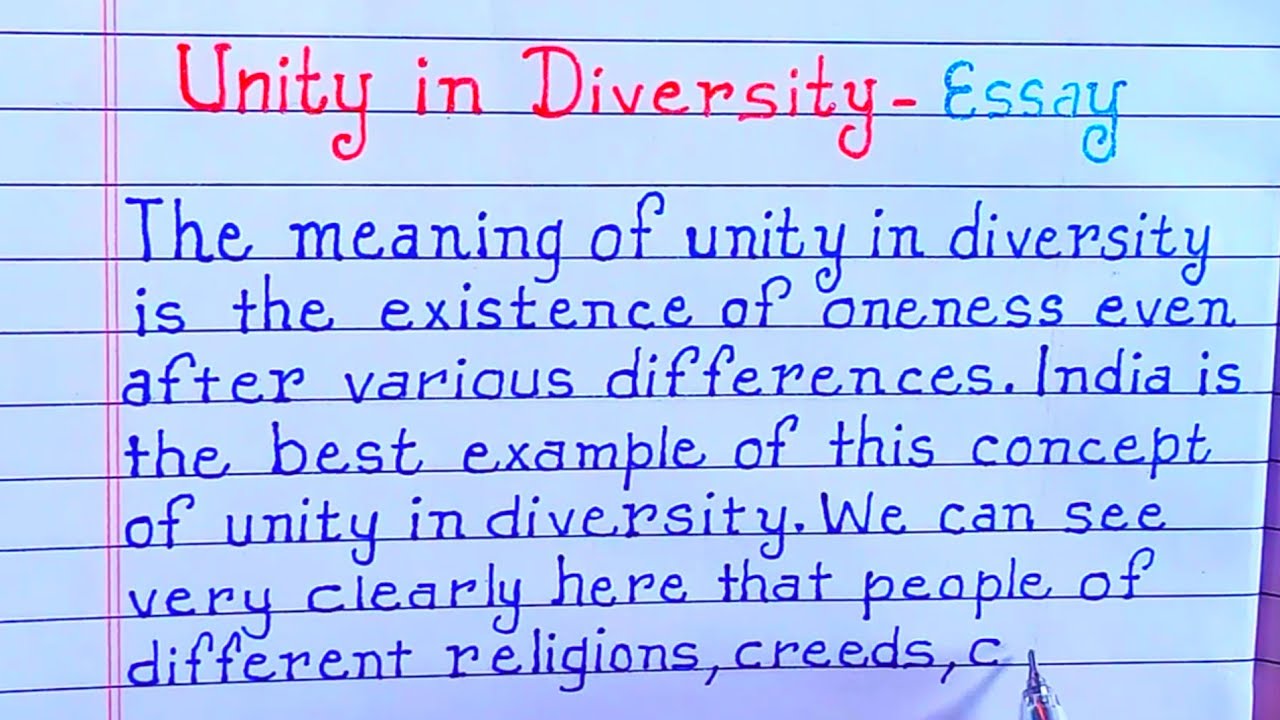 Unity in Diversity- Essay
The meaning of unity in diversity
is the existence of oneness even
after various differences. India is
the best example of this concept
of unity in diversity. We can see
very clearly here that people of
different religions, creeds, c